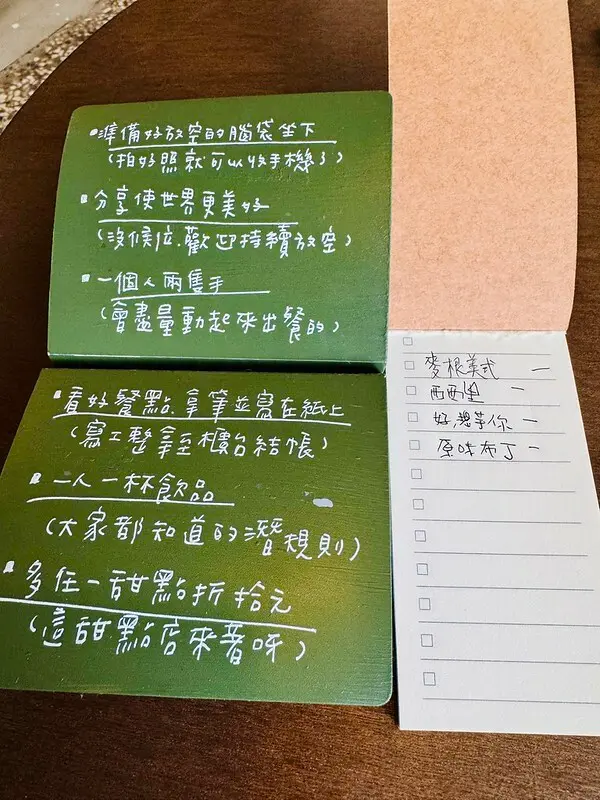 ▪準備好放空的腦袋坐下
(拍好照就可以收手機了)
▪分享使世界更美好
(沒候位.歡迎持續放空)
▪一個人兩隻手
(會盡量動起來出餐的)
▪看好餐點.拿筆並寫在紙上
(寫工整拿至櫃台結帳)
▪一人一杯飲品
(大家都知道的潛規則)
▪多任一甜點折拾元
(這甜點店來著呀)
麥根美式 一
西西里 一
好想芋你 一
原味布丁 一